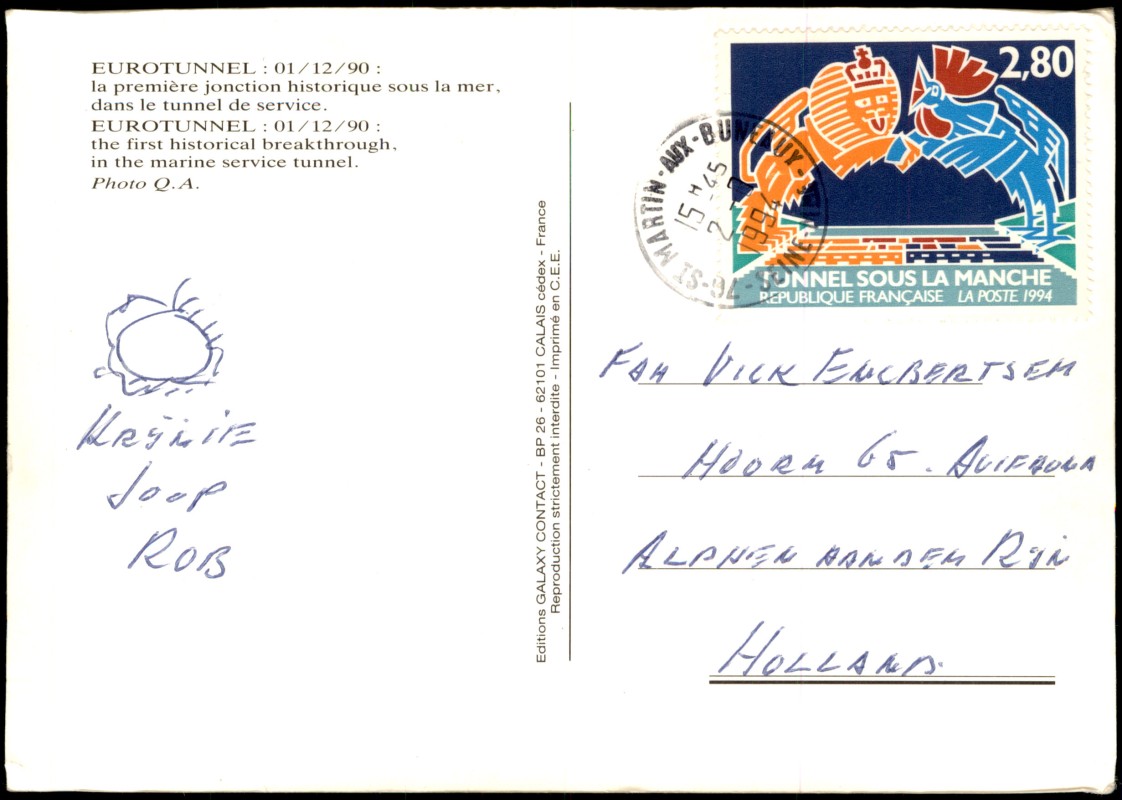 EUROTUNNEL : 01/12/90 :
la première jonction historique sous la mer,
dans le tunnel de service.
EUROTUNNEL : 01/12/90 :
the first historical breakthrough,
in the marine service tunnel.
Photo Q.A.
Joop
ROB
Editions GALAXY CONTACT - BP 26 - 62101 CALAIS cédex - France
Reproduction strictement interdite - Imprimé en C.E.E.
2,80
TUNNEL SOUS LA MANCHE
RÉPUBLIQUE FRANÇAISE LA POSTE 1994
76-ST MARTIN-AUX-BUNEAUX-SEINE-MME
15 H 45
2-7
1994
FAM VICK ENGBERTSEN
HOORN 65. AVIFAUNA
ALPHEN AAN DEN RIJN
HOLLAND.